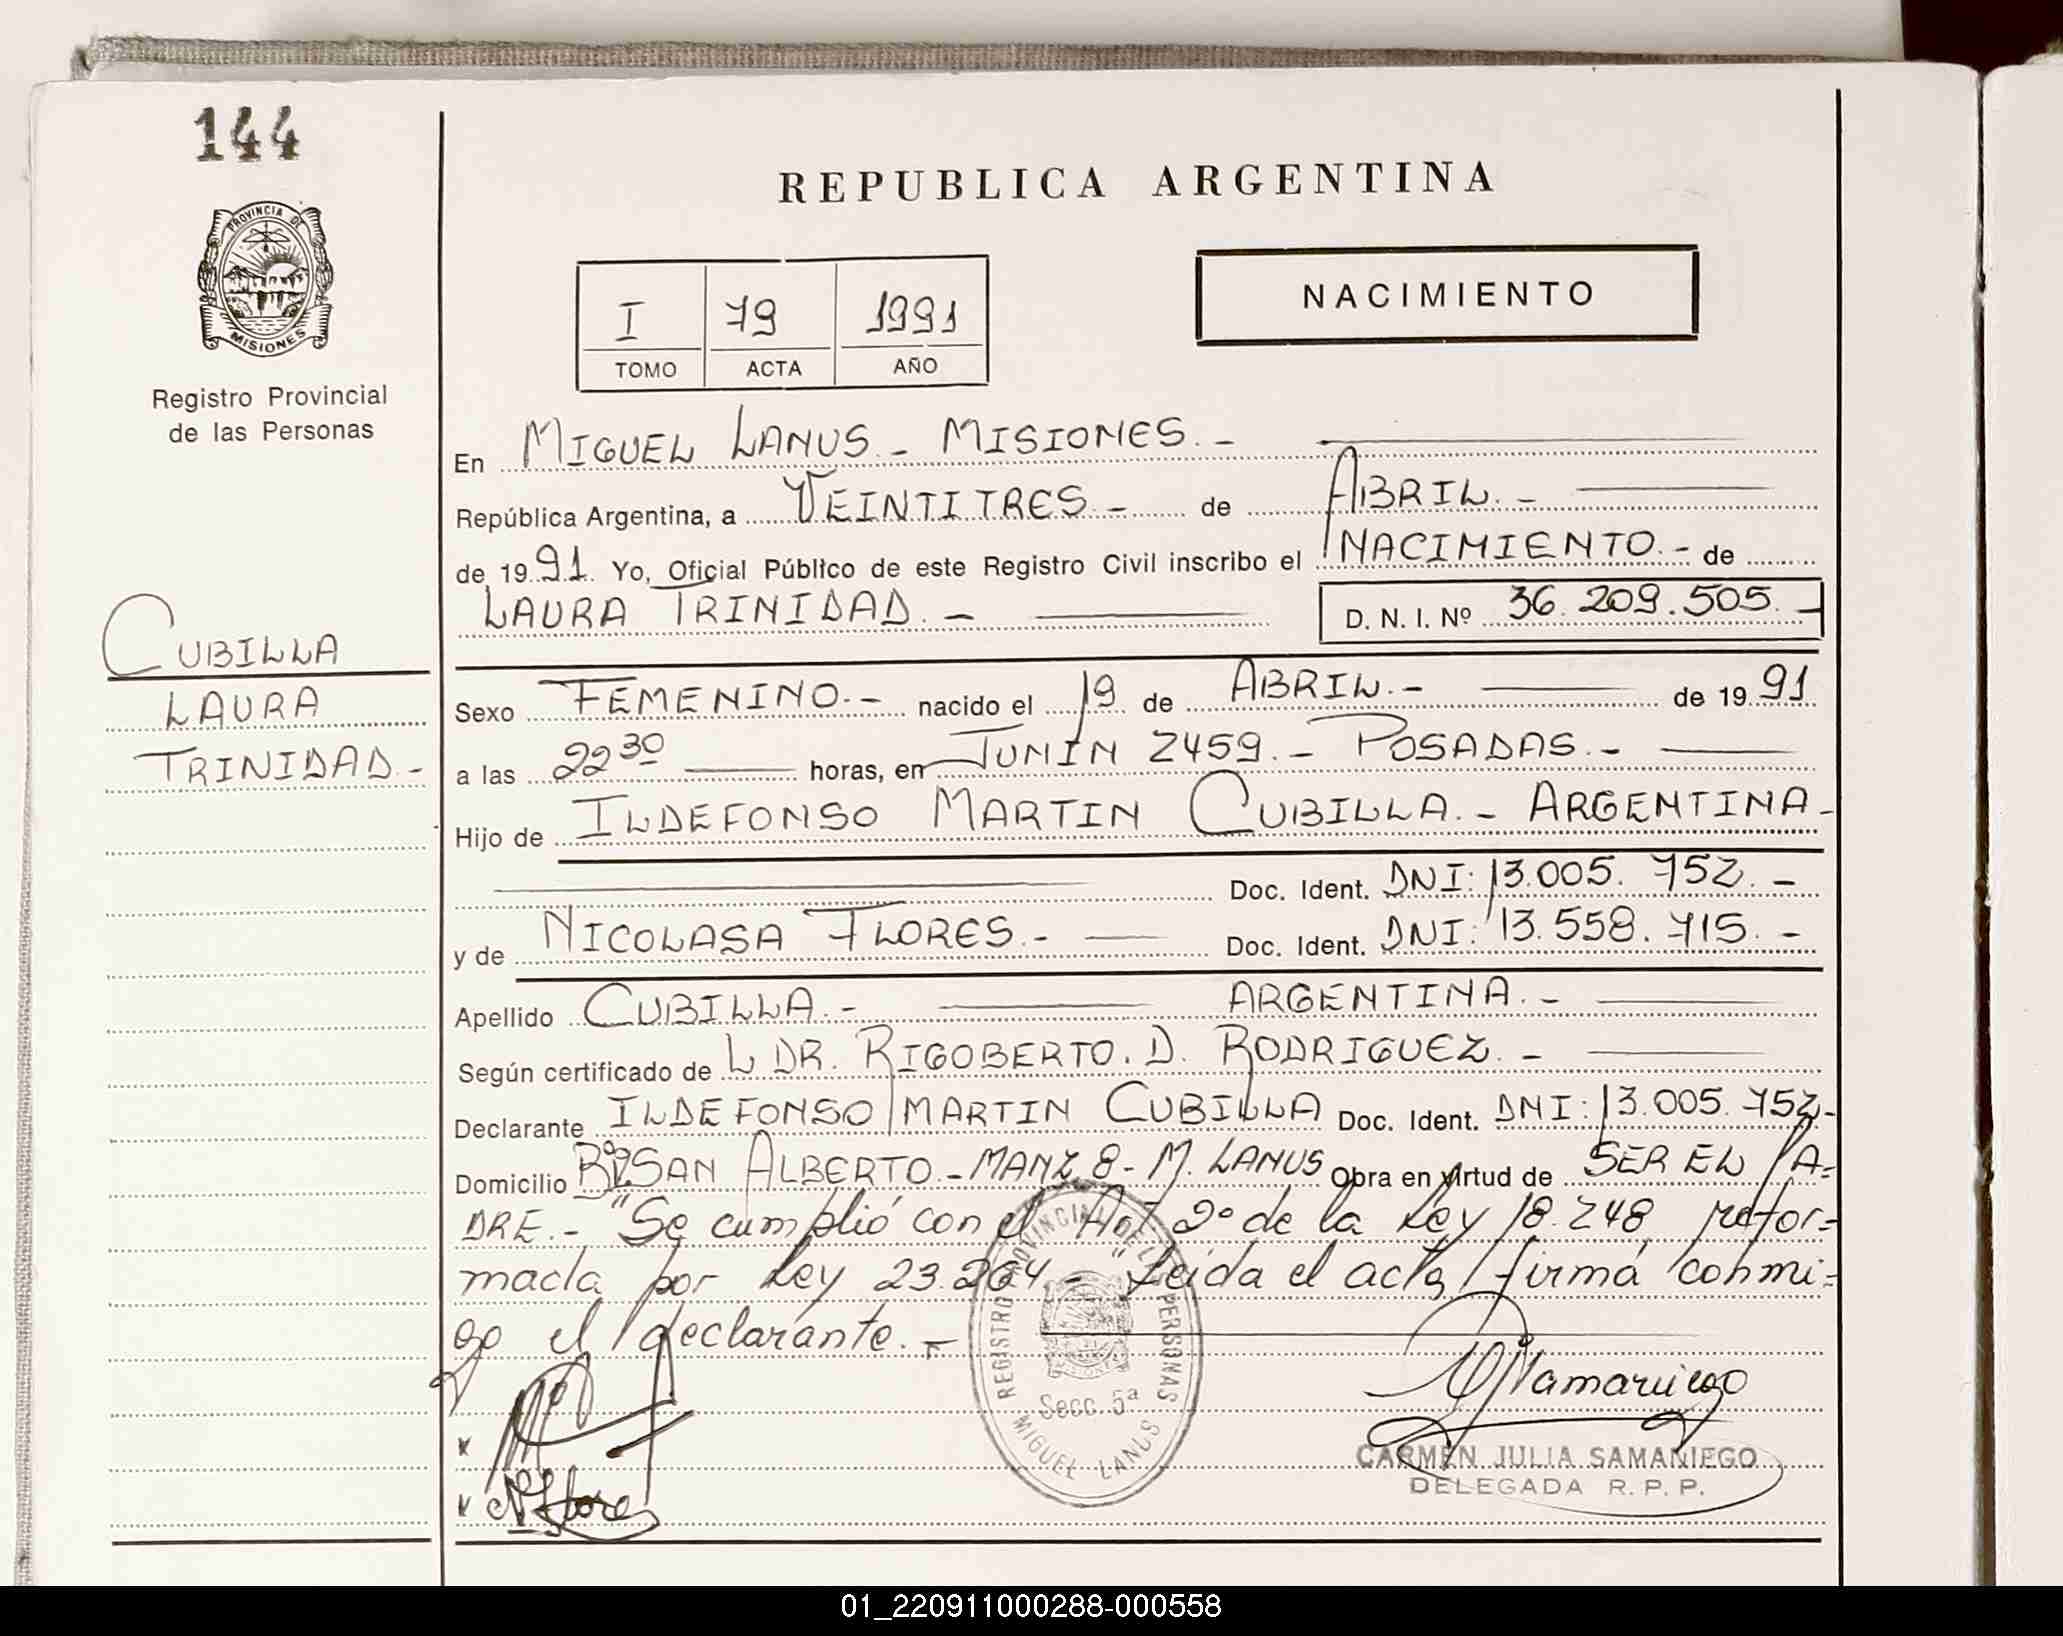 144
PROVINCIA DE
MISIONES
Registro Provincial
de las Personas
REPUBLICA ARGENTINA
I 79 1991
TOMO ACTA AÑO
NACIMIENTO
En MIGUEL LANUS.- MISIONES.-
República Argentina, a VEINTITRES.- de ABRIL.-
de 1991. Yo, Oficial Público de este Registro Civil inscribo el NACIMIENTO.- de
LAURA TRINIDAD.- D. N. I. Nº 36.209.505.-
CUBILLA
LAURA
TRINIDAD.-
Sexo FEMENINO.- nacido el 19 de ABRIL.- de 1991
a las 22 30 horas, en JUNIN 2459.- POSADAS.-
Hijo de ILDEFONSO MARTIN CUBILLA.- ARGENTINA-
Doc. Ident. DNI: 13.005.752.-
y de NICOLASA FLORES.- Doc. Ident. DNI: 13.558.715.-
Apellido CUBILLA.- ARGENTINA.-
Según certificado de L DR. RIGOBERTO. D. RODRIGUEZ.-
Declarante ILDEFONSO MARTIN CUBILLA Doc. Ident. DNI: 13.005.752-
Domicilio Bº SAN ALBERTO - MANZ 8 - M. LANUS Obra en virtud de SER EL PA=
DRE.- "Se cumplió con el Art 2º de la Ley 18.248, refor=
mada por Ley 23.264-" Leida el acta, firmá conmi=
go el declarante.-
REGISTRO PROVINCIAL DE LAS PERSONAS
Secc. 5ª
MIGUEL LANUS
N Flores
Samaniego
CARMEN JULIA SAMANIEGO
DELEGADA R. P. P.
01_220911000288-000558